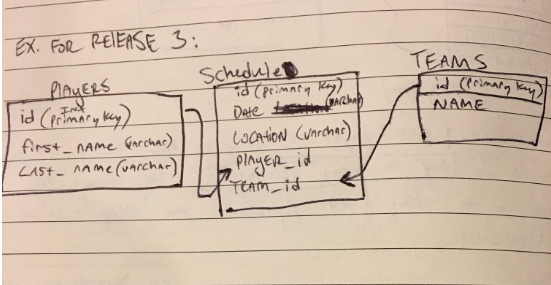 EX. FOR RELEASE 3:
PlAYERS
id (Int primary key)
first_name (varchar)
LAST_name (varchar)
Schedule
id (primary key)
DATE (VARchar)
LOCATION (varchar)
PlAYER_id
TEAM_id
TEAMS
id (primary key)
NAME